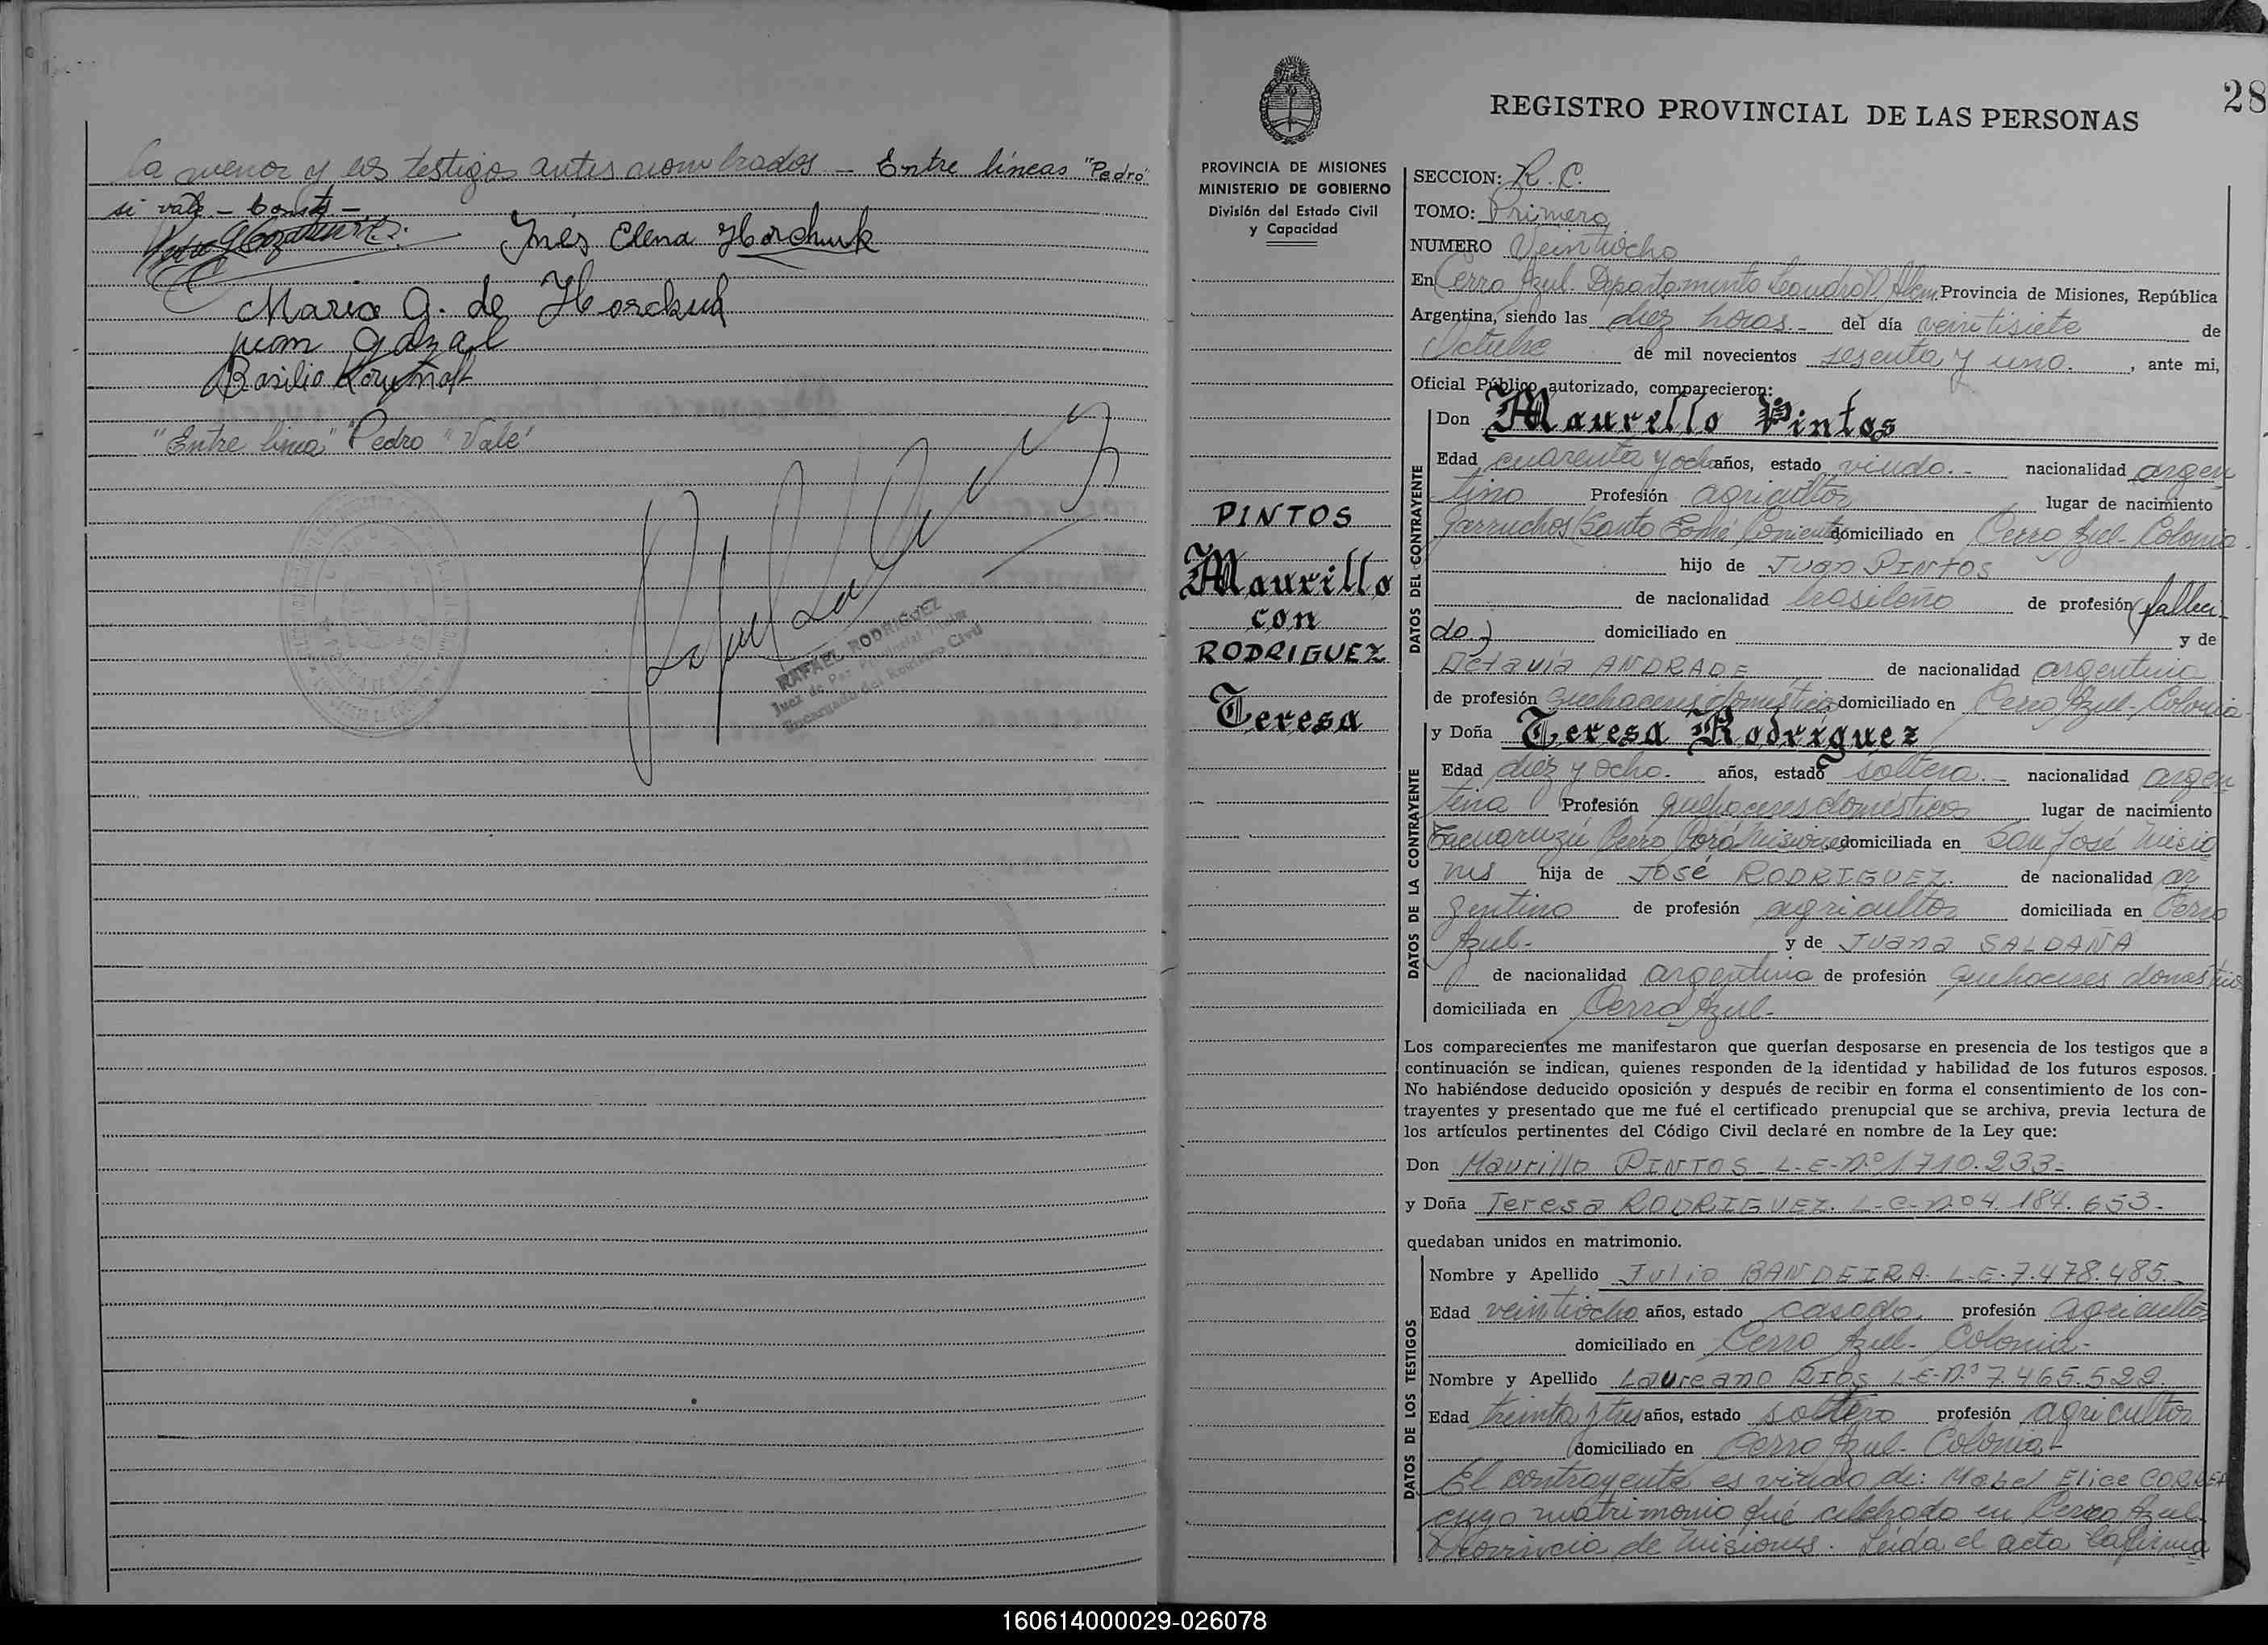 la menor y los testigos antes nombrados - Entre líneas "Pedro"
si vale - Conste -
Inés Elena Horchuk
Maria G. de Horchuk
Basilio
"Entre línea" "Pedro" "Vale"
RAFAEL RODRIGUEZ
Juez de Paz Provincial Titular
Encargado del Registro Civil
28
REGISTRO PROVINCIAL DE LAS PERSONAS
PROVINCIA DE MISIONES
MINISTERIO DE GOBIERNO
División del Estado Civil
y Capacidad
PINTOS
Maurillo
con
RODRIGUEZ
Teresa
SECCION: R. C.
TOMO: Primero
NUMERO Veintiocho
En Cerro Azul. Departamento Leandro N. Alem Provincia de Misiones, República
Argentina, siendo las diez horas.- del día veintisiete de
Octubre de mil novecientos sesenta y uno. , ante mi,
Oficial Público autorizado, comparecieron:
DATOS DEL CONTRAYENTE
Don Maurillo Pintos
Edad cuarenta y ocho años, estado viudo.- nacionalidad argen
tino Profesión agricultor lugar de nacimiento
Garruchos (Santo Tomé Corrientes domiciliado en Cerro Azul- Colonia.
hijo de Juan PINTOS
de nacionalidad brasileño de profesión (falleci-
do.) domiciliado en y de
Octavia ANDRADE de nacionalidad argentina
de profesión quehaceres domésticos domiciliado en Cerro Azul- Colonia
DATOS DE LA CONTRAYENTE
y Doña Teresa Rodriguez
Edad diez y ocho. años, estado soltera.- nacionalidad argen
tina Profesión quehaceres domésticos lugar de nacimiento
Tacuaruzú Cerro Corá Misiones domiciliada en San José Misio
nes hija de José RODRIGUEZ. de nacionalidad ar
gentino de profesión agricultor domiciliada en Cerro
Azul- y de Juana SALDAÑA
de nacionalidad argentina de profesión quehaceres domésticos
domiciliada en Cerro Azul-
Los comparecientes me manifestaron que querían desposarse en presencia de los testigos que a
continuación se indican, quienes responden de la identidad y habilidad de los futuros esposos.
No habiéndose deducido oposición y después de recibir en forma el consentimiento de los con-
trayentes y presentado que me fué el certificado prenupcial que se archiva, previa lectura de
los artículos pertinentes del Código Civil declaré en nombre de la Ley que:
Don Maurillo PINTOS L-E-Nº 1.710.233-
y Doña Teresa RODRIGUEZ. L-C-Nº 4.184.653-
quedaban unidos en matrimonio.
DATOS DE LOS TESTIGOS
Nombre y Apellido Julio BANDEIRA- L-E-7.478.485-
Edad veintiocho años, estado casado. profesión agricultor
domiciliado en Cerro Azul- Colonia-
Nombre y Apellido Laureano RIOS L-E-Nº 7.465.522.
Edad treinta y tres años, estado soltero profesión agricultor
domiciliado en Cerro Azul- Colonia-
El contrayente es viudo de: Mabel Elice CORREA
cuyo matrimonio fué celebrado en Cerro Azul
Provincia de Misiones. Leída el acta la firma
160614000029-026078